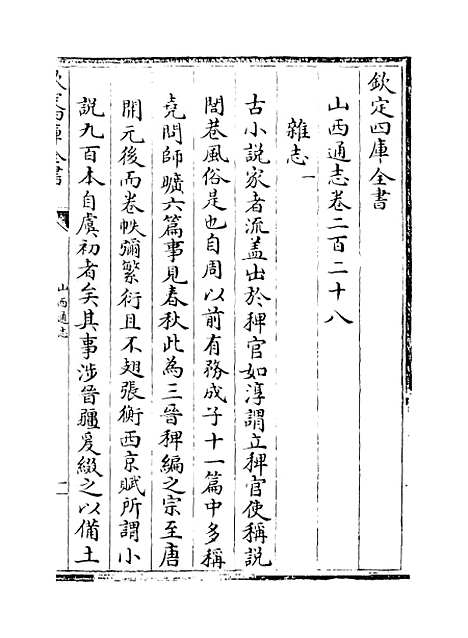 欽定四庫全書
山西通志卷二百二十八
雜志一
古小說家者流蓋出於稗官如淳謂立稗官使稱說
閭巷風俗是也自周以前有務成子十一篇中多稱
堯問師曠六篇事見春秋此為三晉稗編之宗至唐
開元後而卷帙彌繁衍且不翅張衡西京賦所謂小
說九百本自虞初者矣其事涉晉疆爰綴之以備土
欽定四庫全書
山西通志
一